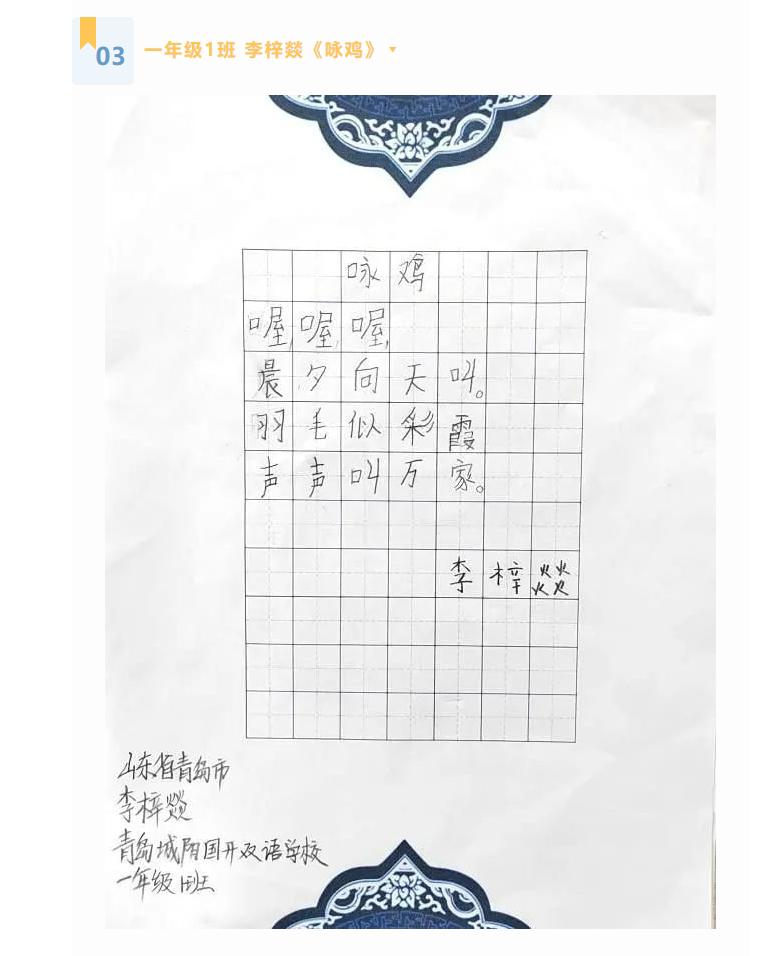 03
一年级1班 李梓燚《咏鸡》
咏鸡
喔,喔,喔,
晨夕向天叫。
羽毛似彩霞
声声叫万家。
李梓燚
山东省青岛市
李梓燚
青岛城阳国开双语学校
一年级1班